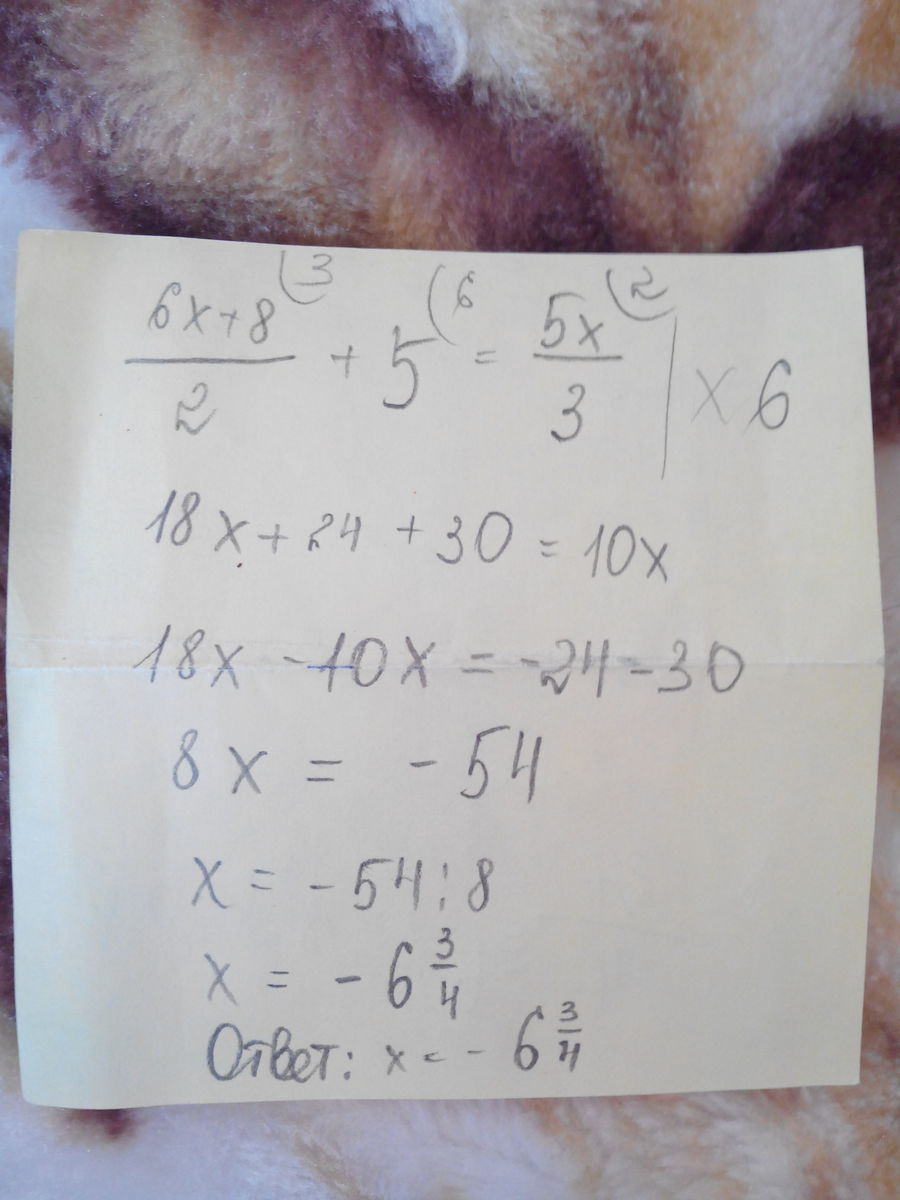 (6x+8)/2 (3 + 5 (6 = 5x/3 (2 | × 6
18x + 24 + 30 = 10x
18x - 10x = -24 - 30
8x = - 54
x = - 54 : 8
x = - 6 3/4
Ответ: x = - 6 3/4